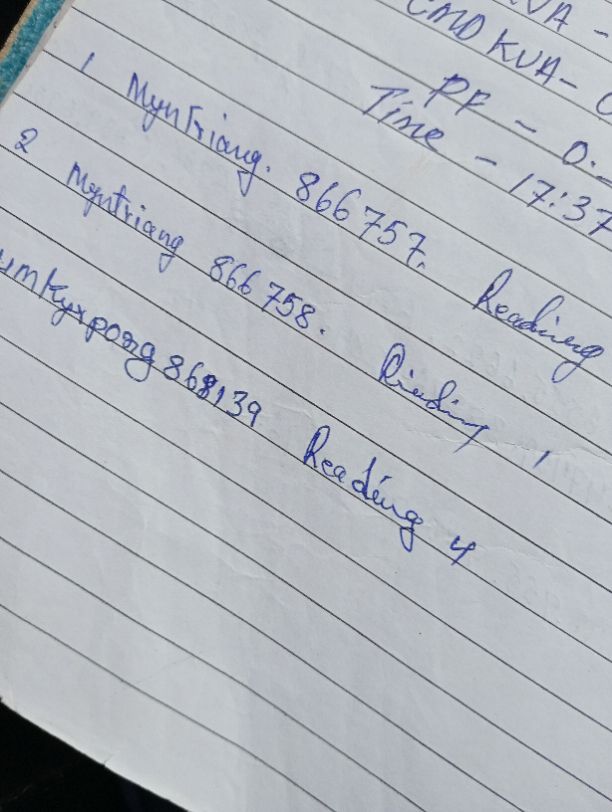 KVA -
CMD KVA- 0
PF - 0.
Time - 17:37
1 Myntriang. 866757. Reading
2 Myntriang 866758. Riading 1
umkyrpong 868139 Reading 4